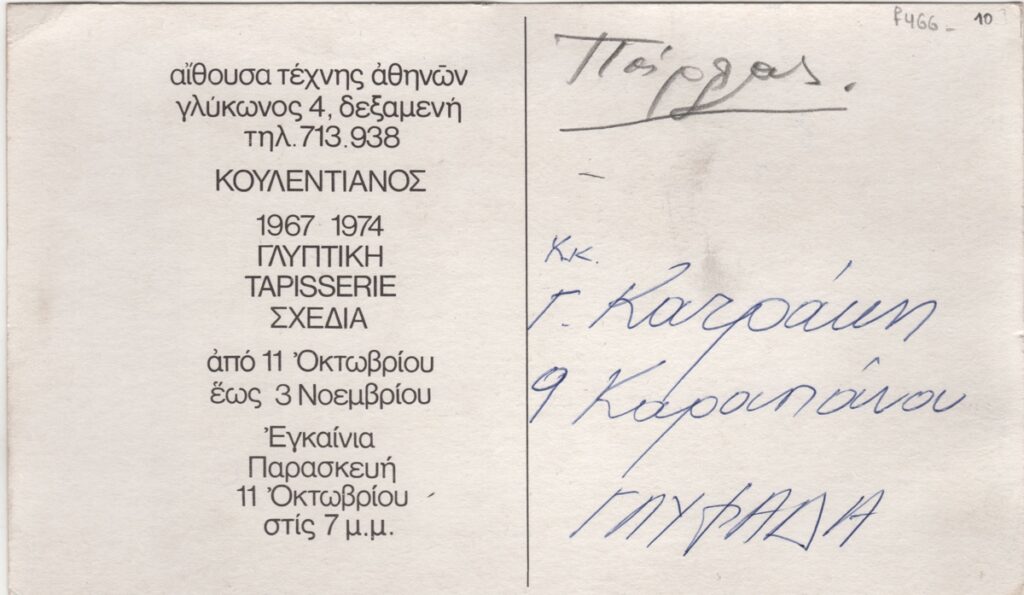 αἴθουσα τέχνης ἀθηνῶν
γλύκωνος 4, δεξαμενή
τηλ.713.938
ΚΟΥΛΕΝΤΙΑΝΟΣ
1967 1974
ΓΛΥΠΤΙΚΗ
TAPISSERIE
ΣΧΕΔΙΑ
ἀπό 11 Ὀκτωβρίου
ἕως 3 Νοεμβρίου
Ἐγκαίνια
Παρασκευή
11 Ὀκτωβρίου
στίς 7 μ.μ.
10
Κκ.
Γ. Κατράκη
9 Καραπάνου
ΓΛΥΦΑΔΑ